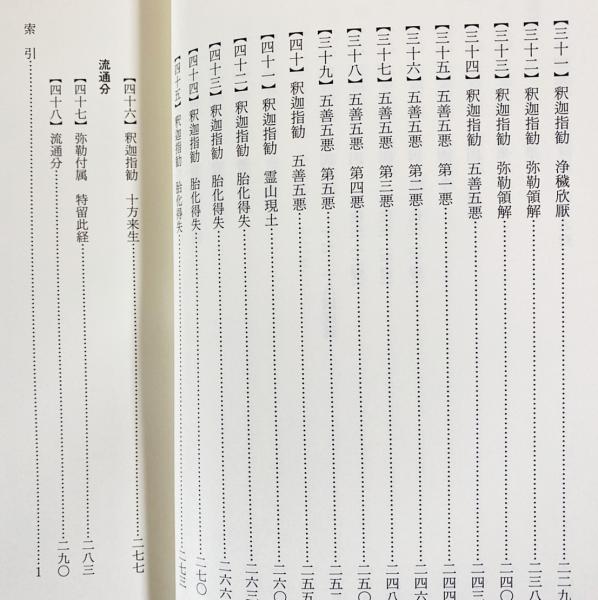 【三十一】 釈迦指勧 浄穢欣厭……二二九
【三十二】 釈迦指勧 弥勒領解……二三八
【三十三】 釈迦指勧 弥勒領解……二四〇
【三十四】 釈迦指勧 五善五悪……二四三
【三十五】 五善五悪 第一悪……二四四
【三十六】 五善五悪 第二悪……二四
【三十七】 五善五悪 第三悪……二四八
【三十八】 五善五悪 第四悪……二五〇
【三十九】 五善五悪 第五悪……二五二
【四十】 釈迦指勧 五善五悪……二五五
【四十一】 釈迦指勧 霊山現土……二六〇
【四十二】 釈迦指勧 胎化得失……二六三
【四十三】 釈迦指勧 胎化得失……二六六
【四十四】 釈迦指勧 胎化得失……二七〇
【四十五】 釈迦指勧 胎化得失……二七三
【四十六】 釈迦指勧 十方来生……二七七
流通分
【四十七】 弥勒付属 特留此経……二八三
【四十八】 流通分……二九〇
索 引……1